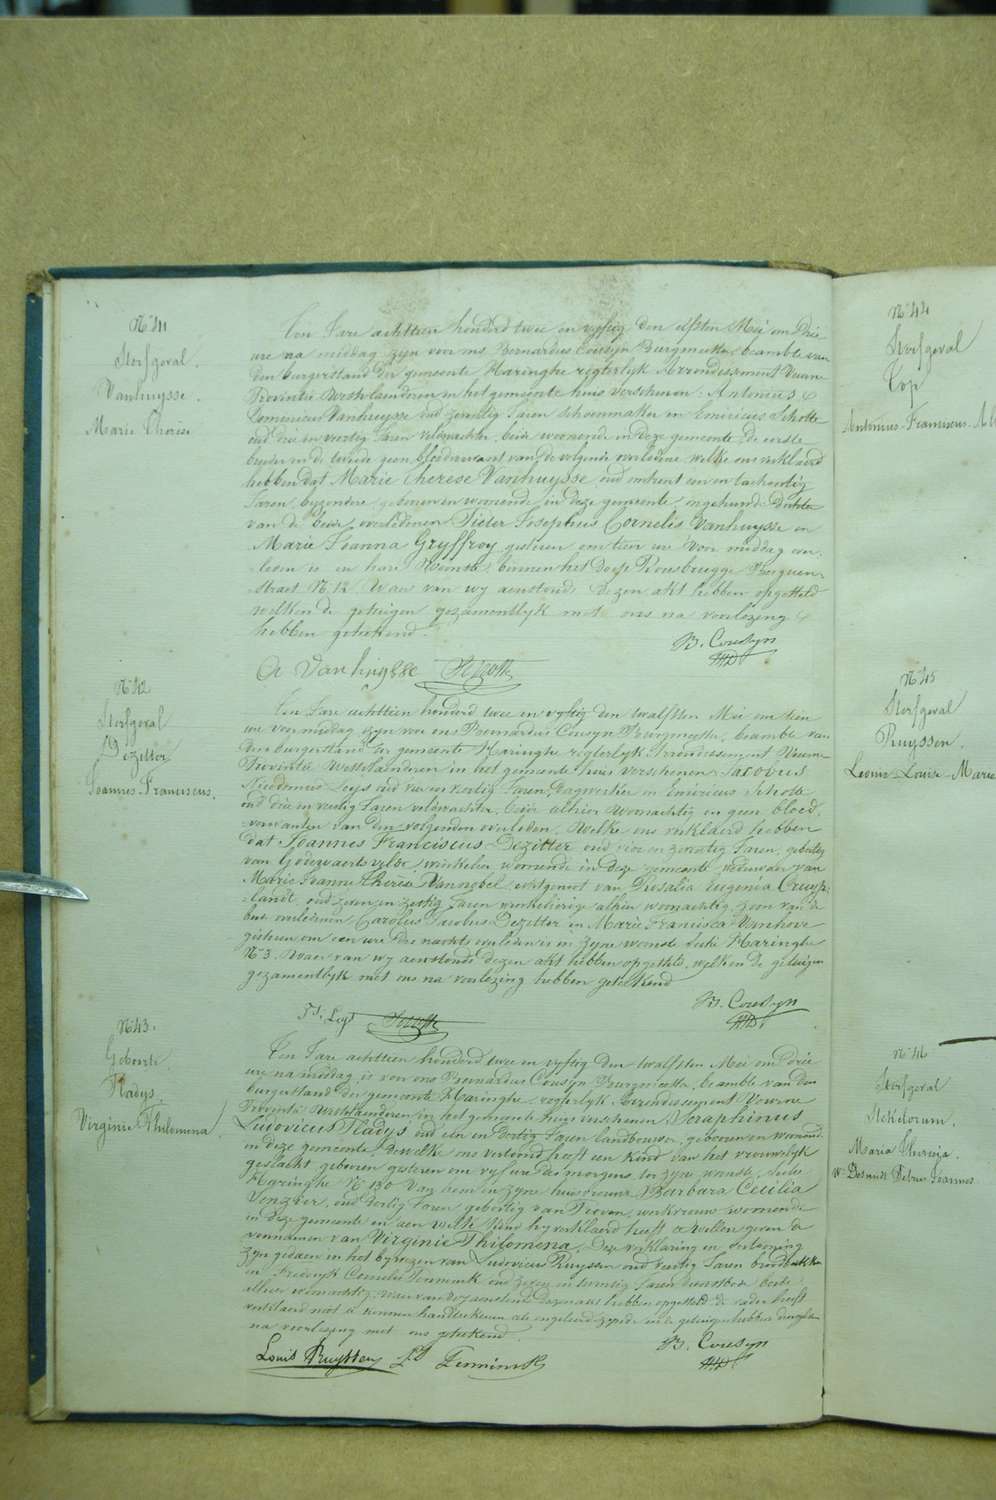 N° 41
Sterfgeval
Vanhuysse
Marie Therese
Ten Jare achttien honderd twee en vyftig den elfsten Mei om Drie
ure na middag zyn voor ons Bernardus Cousyn Burgmeester, beambte van
den burgerstand der gemeente Haringhe regterlyk Arrondissement Veurne
Provintie Westvlaenderen in het gemeente huis verschenen Antonius
Vanhuysse oud Jaren schoenmaker en Emericus Scholte
oud drie en veertig Jaren veldwachter, beide woonende in deze gemeente, de eerste
de tweede geen bloedverwant van de volgende overledene welke ons verklaerd
hebben dat Marie Therese Vanhuysse oud omtrent een en tachentig
Jaren, byzondere geboren en woonende in deze gemeente ongehuwd Dochter
van de beide overledenen Pieter Josephus Cornelis Vanhuysse en
Marie Joanna Gryffroy gisteren om tien ure voor middag over-
-leden is in hare Woonste binnen het dorp Rousbrugge Berguen-
-straet N. 12 Waer van wy aenstonds dezen akt hebben opgesteld
welken de getuigen gezamentlyk met ons na voorlezing
hebben geteekend.
B. Cousyn
A Vanhuysse
N° 42
Sterfgeval
Dezitter
Joannes Franciscus
Ten Jare achttien honderd twee en vyftig den twalfsten Mei om tien
ure voormiddag zyn voor ons Bernardus Cousyn Burgmeester, beambte van
den burgerstand der gemeente Haringhe regterlyk Arrondissement Veurne
Provintie Westvlaenderen in het gemeente huis verschenen Jacobus
Leys oud vier en veertig Jaren, dagwerker en Emericus Scholte
oud drie en veertig Jaren veldwachter, beide alhier woonachtig en geen bloed-
-verwanten van den volgenden overleden. Welke ons verklaerd hebben
dat Joannes Franciscus Dezitter oud vier en zeventig Jaren, geboortig
van Godewaertsvelde, winkelier woonende in deze gemeente weduwaer van
Marie Jeanne Therese Vannobel echtgenoot van Rosalia Eugenia Cruys-
-landt, oud zeven en zestig Jaren winkelierige alhier woonachtig, zoon van de
beide overledenen Carolus Jacobus Dezitter en Marie Francisca Vanhove
gisteren om een ure des nachts overleden is in zyne woonste Haringhe
N° 3. Waer van wy aenstonds dezen akt hebben opgesteld, welken de getuigen
gezamentlyk met ons na voorlezing hebben geteekend
B. Cousyn
N° 43.
Geboorte
Pladys
Virginie Philomena
Ten Jare achttien honderd twee en vyftig den twalfsten Mei om Drie
ure na middag is voor ons Bernardus Cousyn Burgmeester, beambte van den
burgerstand der gemeente Haringhe regterlyk Arrondissement Veurne
Provintie Westvlaenderen in het gemeente huis verschenen Seraphinus
Ludovicus Pladys oud een en dertig Jaren landbouwer, geboren en woonende
in deze gemeente. Dewelke ons vertoond heeft een kind van het vrouwelyk
geslacht geboren gisteren om vyf ure des morgens ter zyne woonste,
Haringhe N° 130 Van hem en zyne huisvrouw Barbara Cecilia
oud dertig Jaren geboortig van Proven, werkvrouw woonende
in deze gemeente en aen welk kind hy verklaerd heeft te willen geven de
voornamen van Virginie Philomena. Deze verklaring en vertooning
zyn gedaen in het bywezen van Ludovicus Ruyssen oud veertig Jaren broodbakker
en Frederyk Cornelis Temminck oud zeven en twintig Jaren beide
alhier woonachtig, waer van wy aenstonds dezen akt hebben opgesteld de vader heeft
verklaerd niet te kunnen handteekenen als ongeleerd zynde en de getuigen hebben
na voorlezing met ons geteekend.
B. Cousyn
Louis Ruyssen
N° 44
Sterfgeval
Top
Antonius Franciscus
N° 45
Sterfgeval
Ruyssen.
Leonie Louise Marie
N° 46
Sterfgeval
Maria Theresia